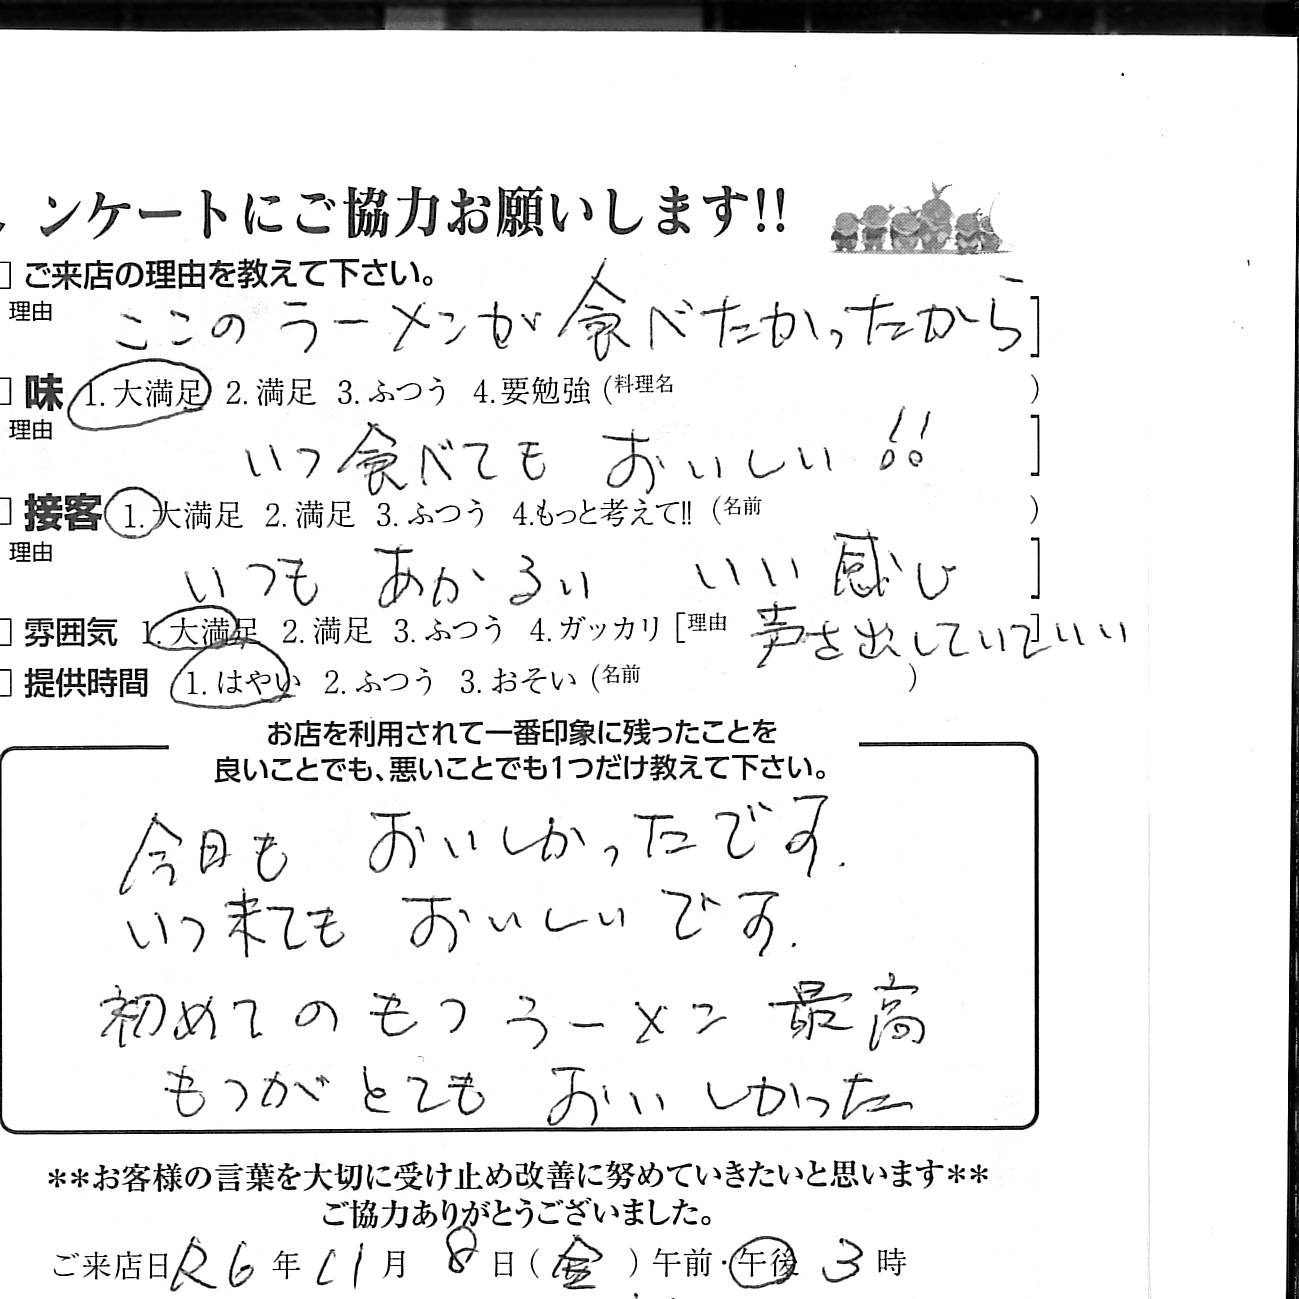 ンケートにご協力お願いします!!
□ ご来店の理由を教えて下さい。
理由 ここのラーメンが食べたかったから]
□ 味 1.大満足 2.満足 3.ふつう 4.要勉強 (料理名 )
理由 いつ食べても おいしい!! ]
□ 接客 1.大満足 2.満足 3.ふつう 4.もっと考えて!! (名前 )
理由 いつも あかるい いい感じ ]
□ 雰囲気 1.大満足 2.満足 3.ふつう 4.ガッカリ [理由 声を出していていい]
□ 提供時間 1.はやい 2.ふつう 3.おそい (名前 )
お店を利用されて一番印象に残ったことを
良いことでも、悪いことでも1つだけ教えて下さい。
今日も おいしかったです.
いつ来ても おいしいです.
初めてのもつラーメン 最高
もつがとても おいしかった
**お客様の言葉を大切に受け止め改善に努めていきたいと思います**
ご協力ありがとうございました。
ご来店日 R6年 11月 8日(金)午前・午後 3時